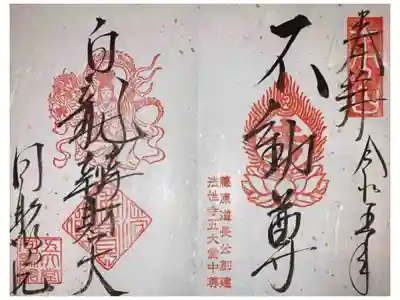 奉拝
令和五年
不動尊
藤原道長公創建
法性寺五大堂中尊
白龍辨財天
同聚院